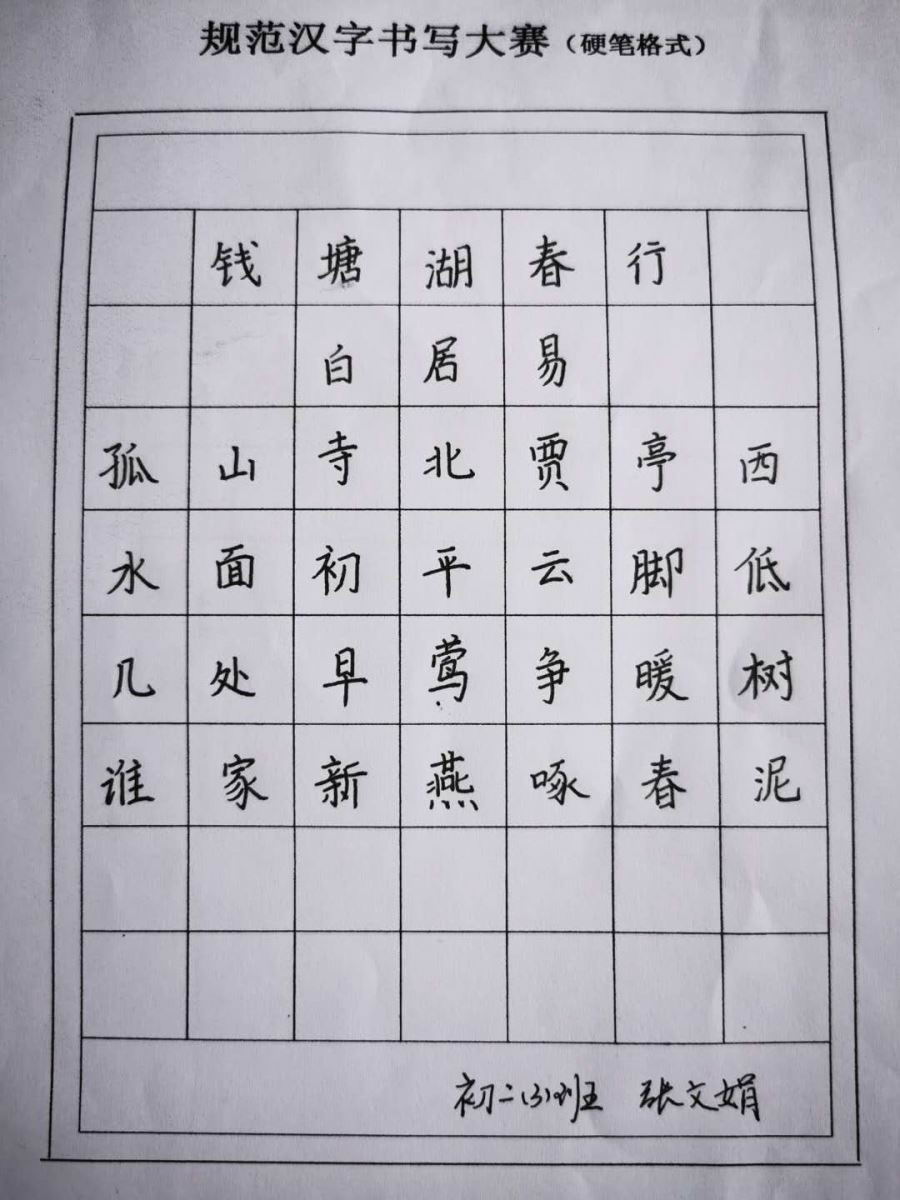 规范汉字书写大赛（硬笔格式）
钱塘湖春行
白居易
孤山寺北贾亭西
水面初平云脚低
几处早莺争暖树
谁家新燕啄春泥
初二(3)班 张文娟